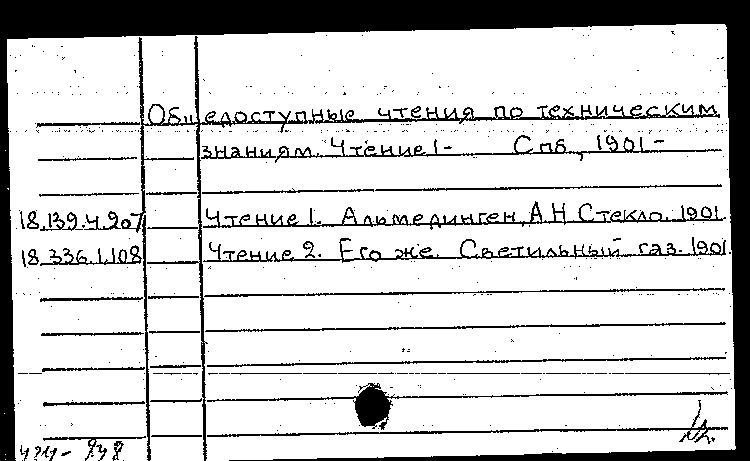 Общедоступные чтения по техническим
знаниям. Чтение 1- Спб, 1901-
18.139.4.207 Чтение 1. Альмединген, А Н Стекло. 1901
18.336.1.108 Чтение 2. Его же. Светильный газ. 1901